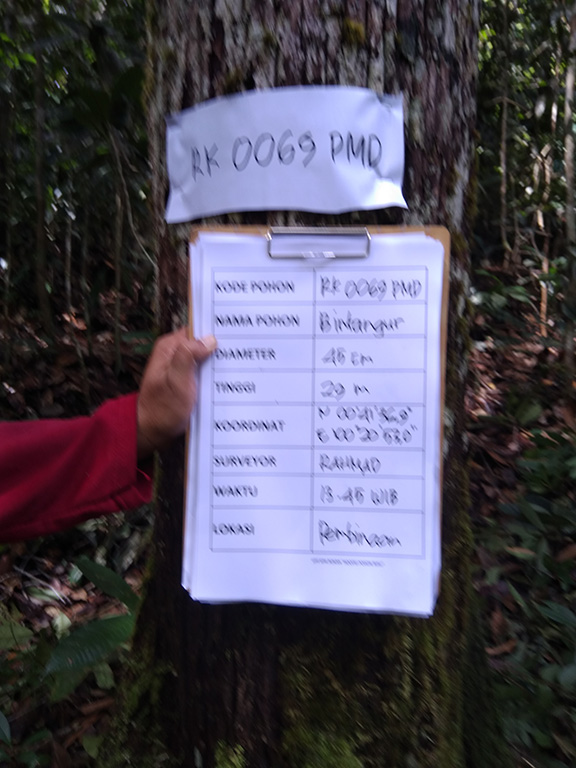 RK 0069 PMD
KODE POHON RK 0069 PMD
NAMA POHON Bintangur
DIAMETER 45 cm
TINGGI 29 m
KOORDINAT N 00°41'36,9"
E 100°20'53,0"
SURVEYOR RAHMAD
WAKTU 13-45 WIB
LOKASI Pembinaan